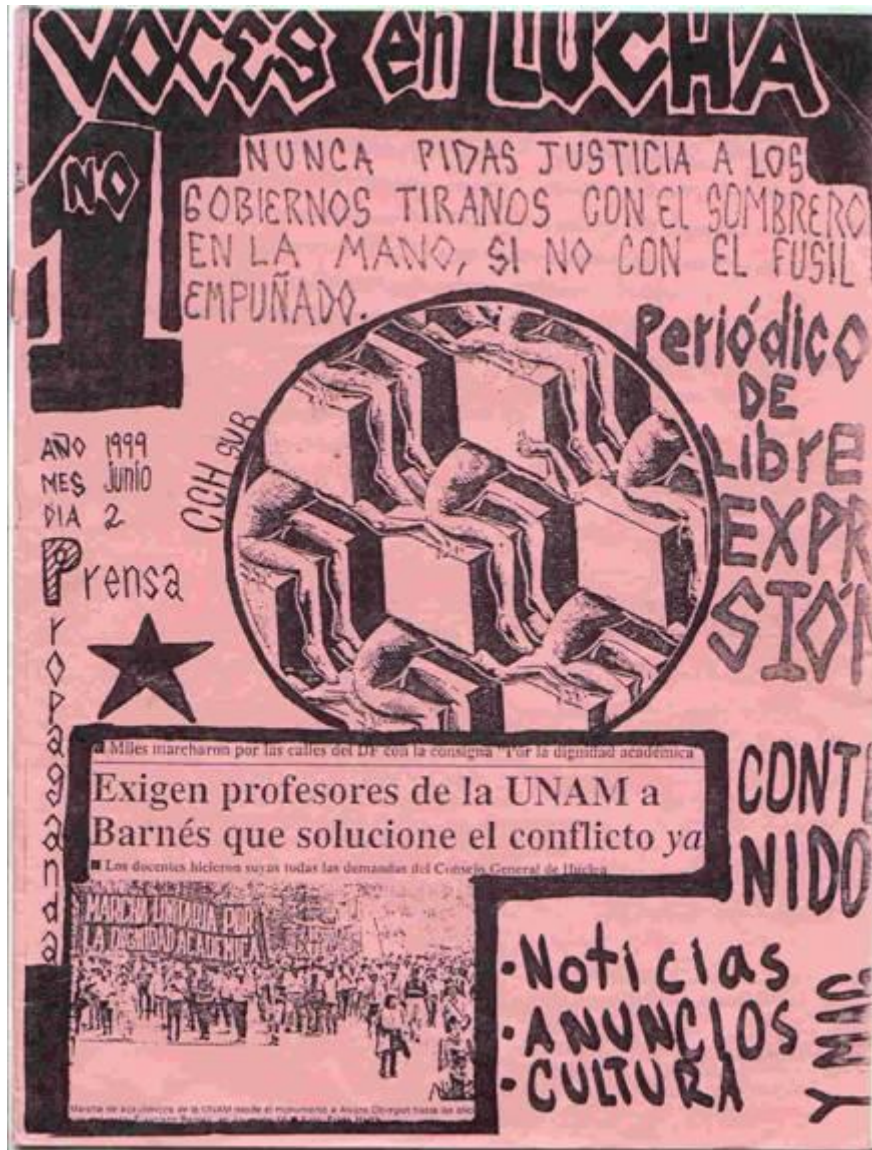 VOCES en LUCHA
NO
1
NUNCA PIDAS JUSTICIA A LOS
GOBIERNOS TIRANOS CON EL SOMBRERO
EN LA MANO, SI NO CON EL FUSIL
EMPUÑADO.
Periódico
DE
Libre
EXPR
SIÓN
AÑO 1999
MES Junio
DIA 2
CCH SUR
Prensa
Propaganda
Miles marcharon por las calles del DF con la consigna "Por la dignidad académica
Exigen profesores de la UNAM a
Barnés que solucione el conflicto ya
Los docentes hicieron suyas todas las demandas del Consejo General de Huelga
MARCHA UNITARIA POR
LA DIGNIDAD ACADEMICA
Marcha de académicos de la UNAM desde el monumento a Alvaro Obregón hasta
CONTE
NIDO
·Noticias
·ANUNCIOS
·CULTURA
Y MAS